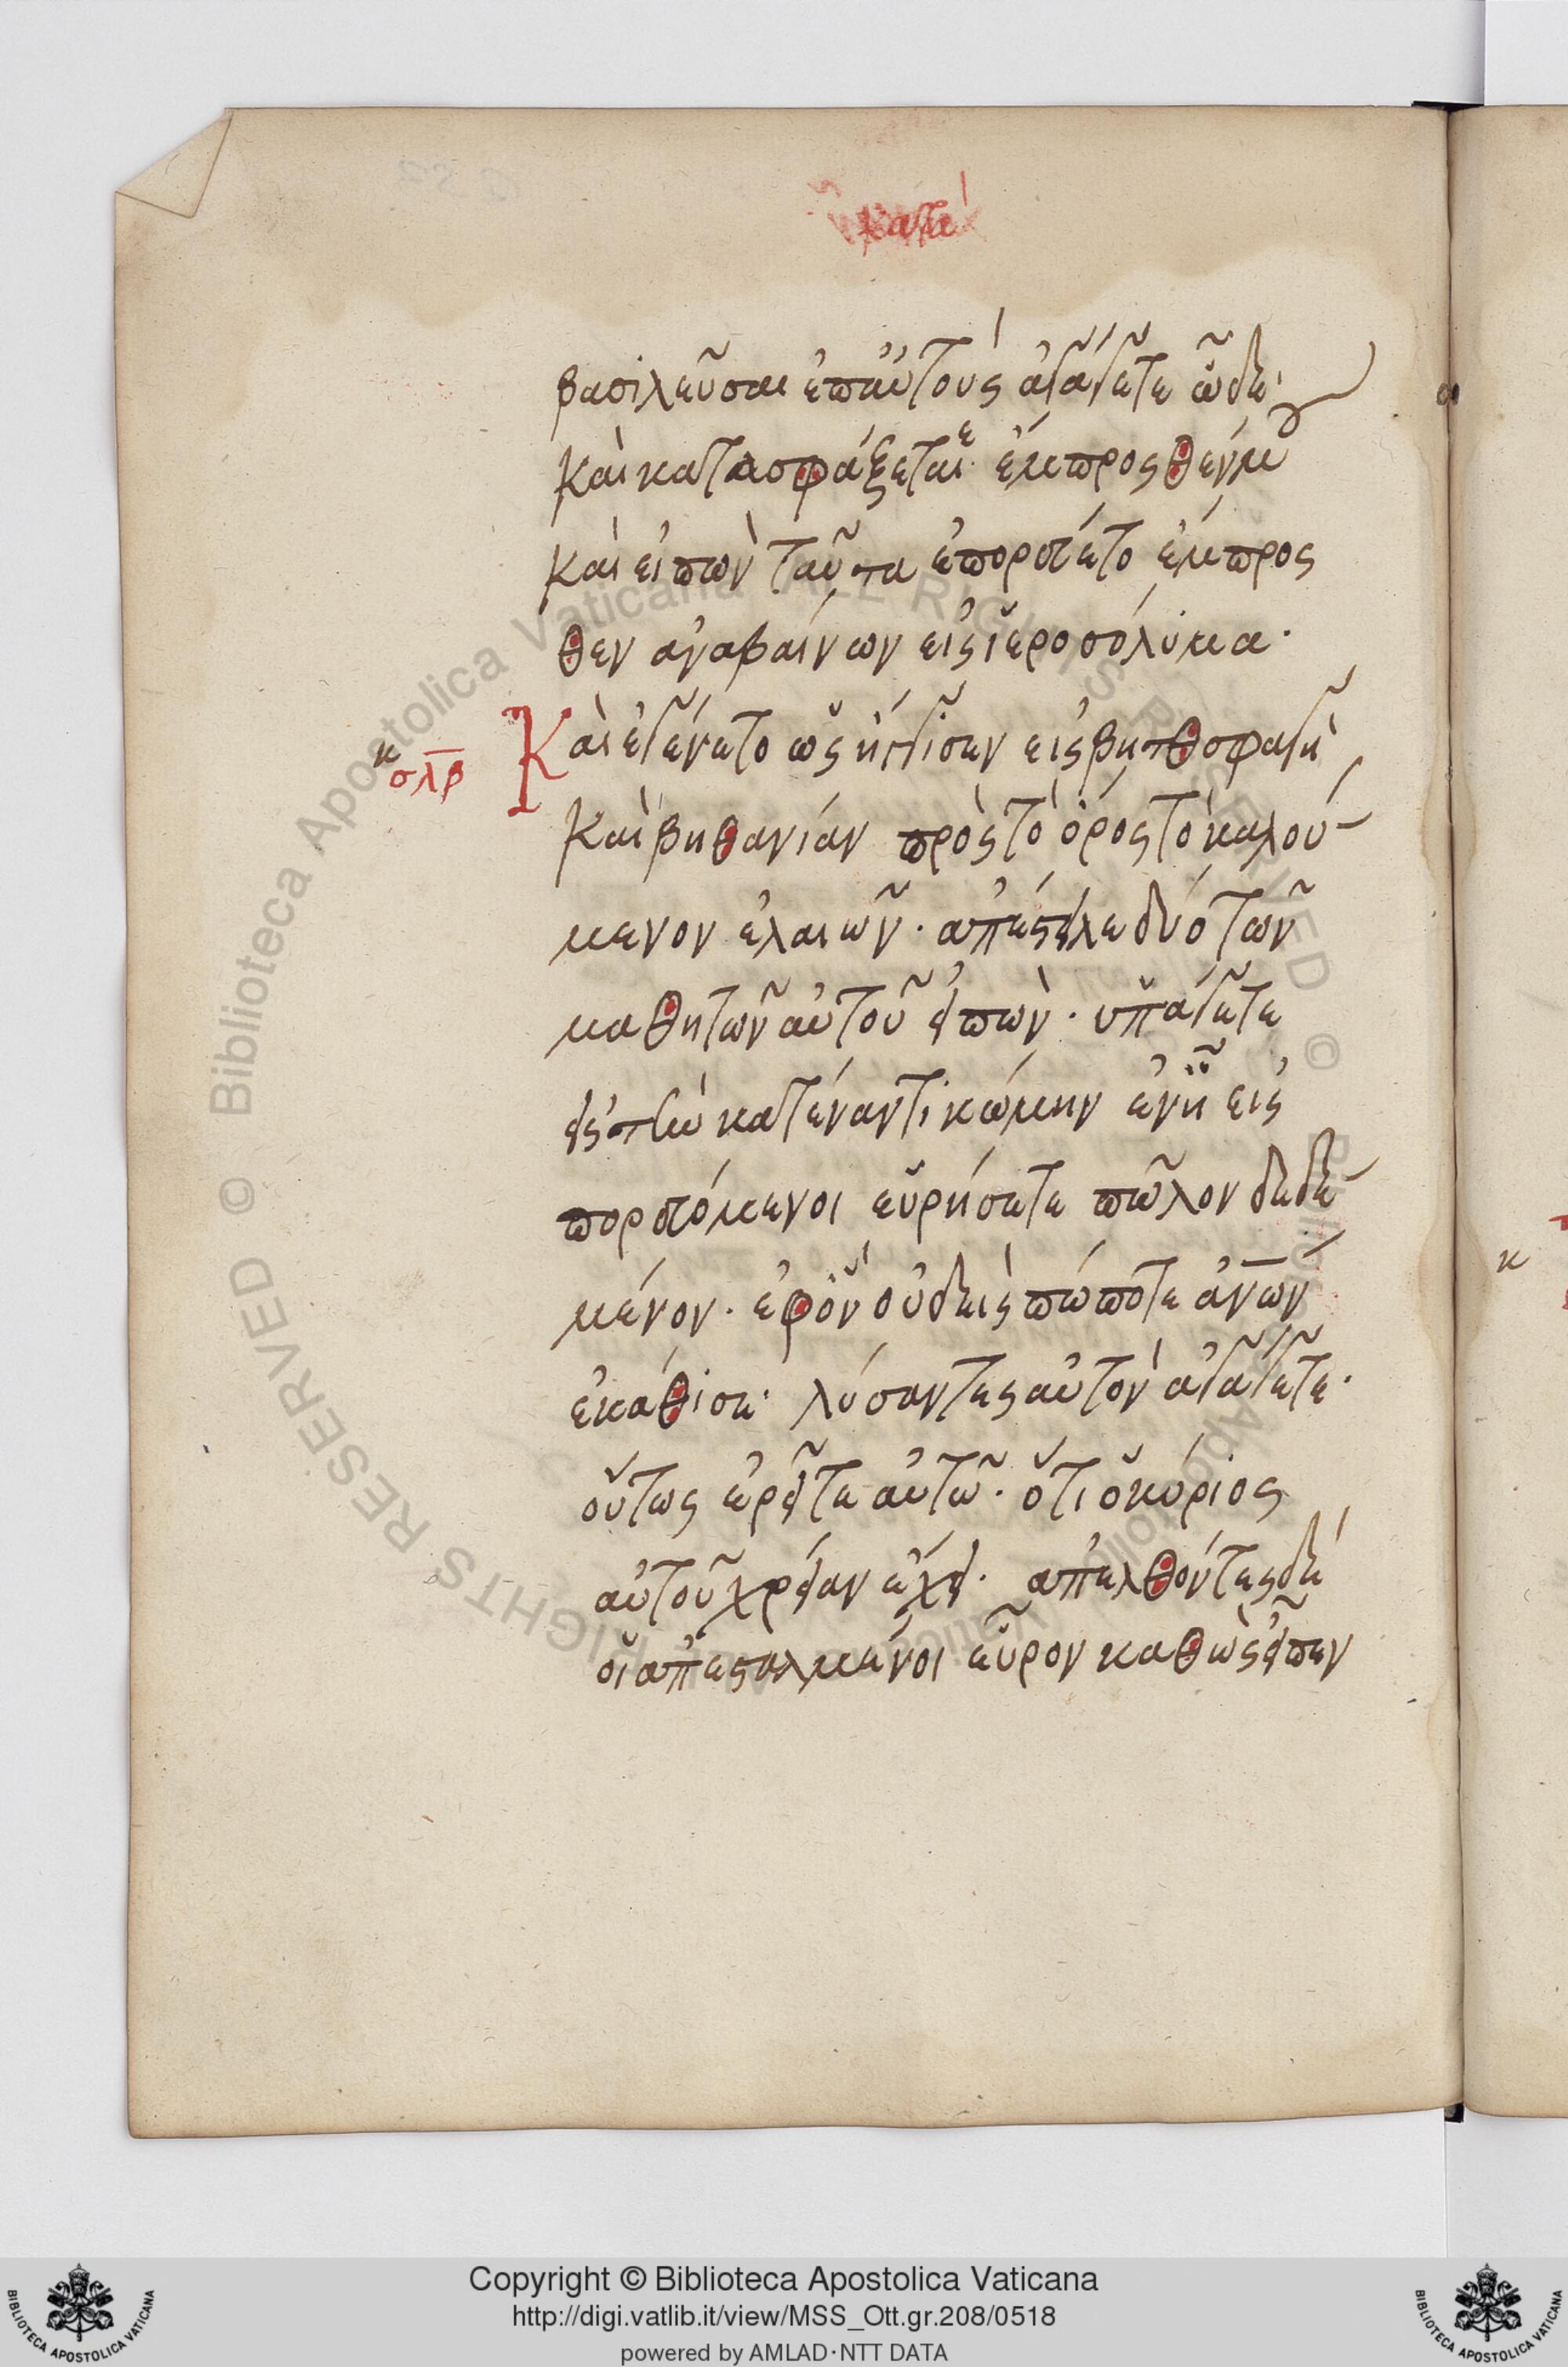 κατα
βασιλεῦσαι ἐπαὐτοὺς ἀγάγετε ὧδε·
Καὶ κατασφάξεταιε ἔμπροσθένμου
Καὶ εἰπὼν ταῦτα ἐπορεύετο ἔμπρος
θεν αναβαίνων εἰς ἱεροσόλυμα·
κ
σλβ
Καὶ ἐγένετο ὡς ἤγγισεν εἰς βητθσφαγὴ
Καὶ βηθανίαν πρὸς τὸ ὄρος τὸ καλού
μενον ἐλαιῶν· απέστειλε δύο τῶν
μαθητῶν αὐτοῦ εἰπὼν· ὑπάγετε
εἰς τὴν κατέναντι κώμην ἐνῇ εἰς
πορευόμενοι εὑρήσετε πῶλον δεδε
μένον· εφὃν οὐδεὶς πώποτε ἀνων
ἐκάθισε· λύσαντες αὐτὸν ἀγάγετε·
οὕτως ἐρεῖτε αὐτῶ· ὅτι ὁ κύριος
αὐτοῦ χρείαν ἔχει· απελθόντες δὲ
οἱ ἀπεσταλμένοι εὗρον καθὼς εἶπεν
κ
Copyright © Biblioteca Apostolica Vaticana
http://digi.vatlib.it/view/MSS_Ott.gr.208/0518
powered by AMLAD·NTT DATA
BIBLIOTECA APOSTOLICA VATICANA
BIBLIOTECA APOSTOLICA VATICANA
© Biblioteca Apostolica Vaticana ALL RIGHTS RESERVED
© Biblioteca Apostolica Vaticana ALL RIGHTS RESERVED